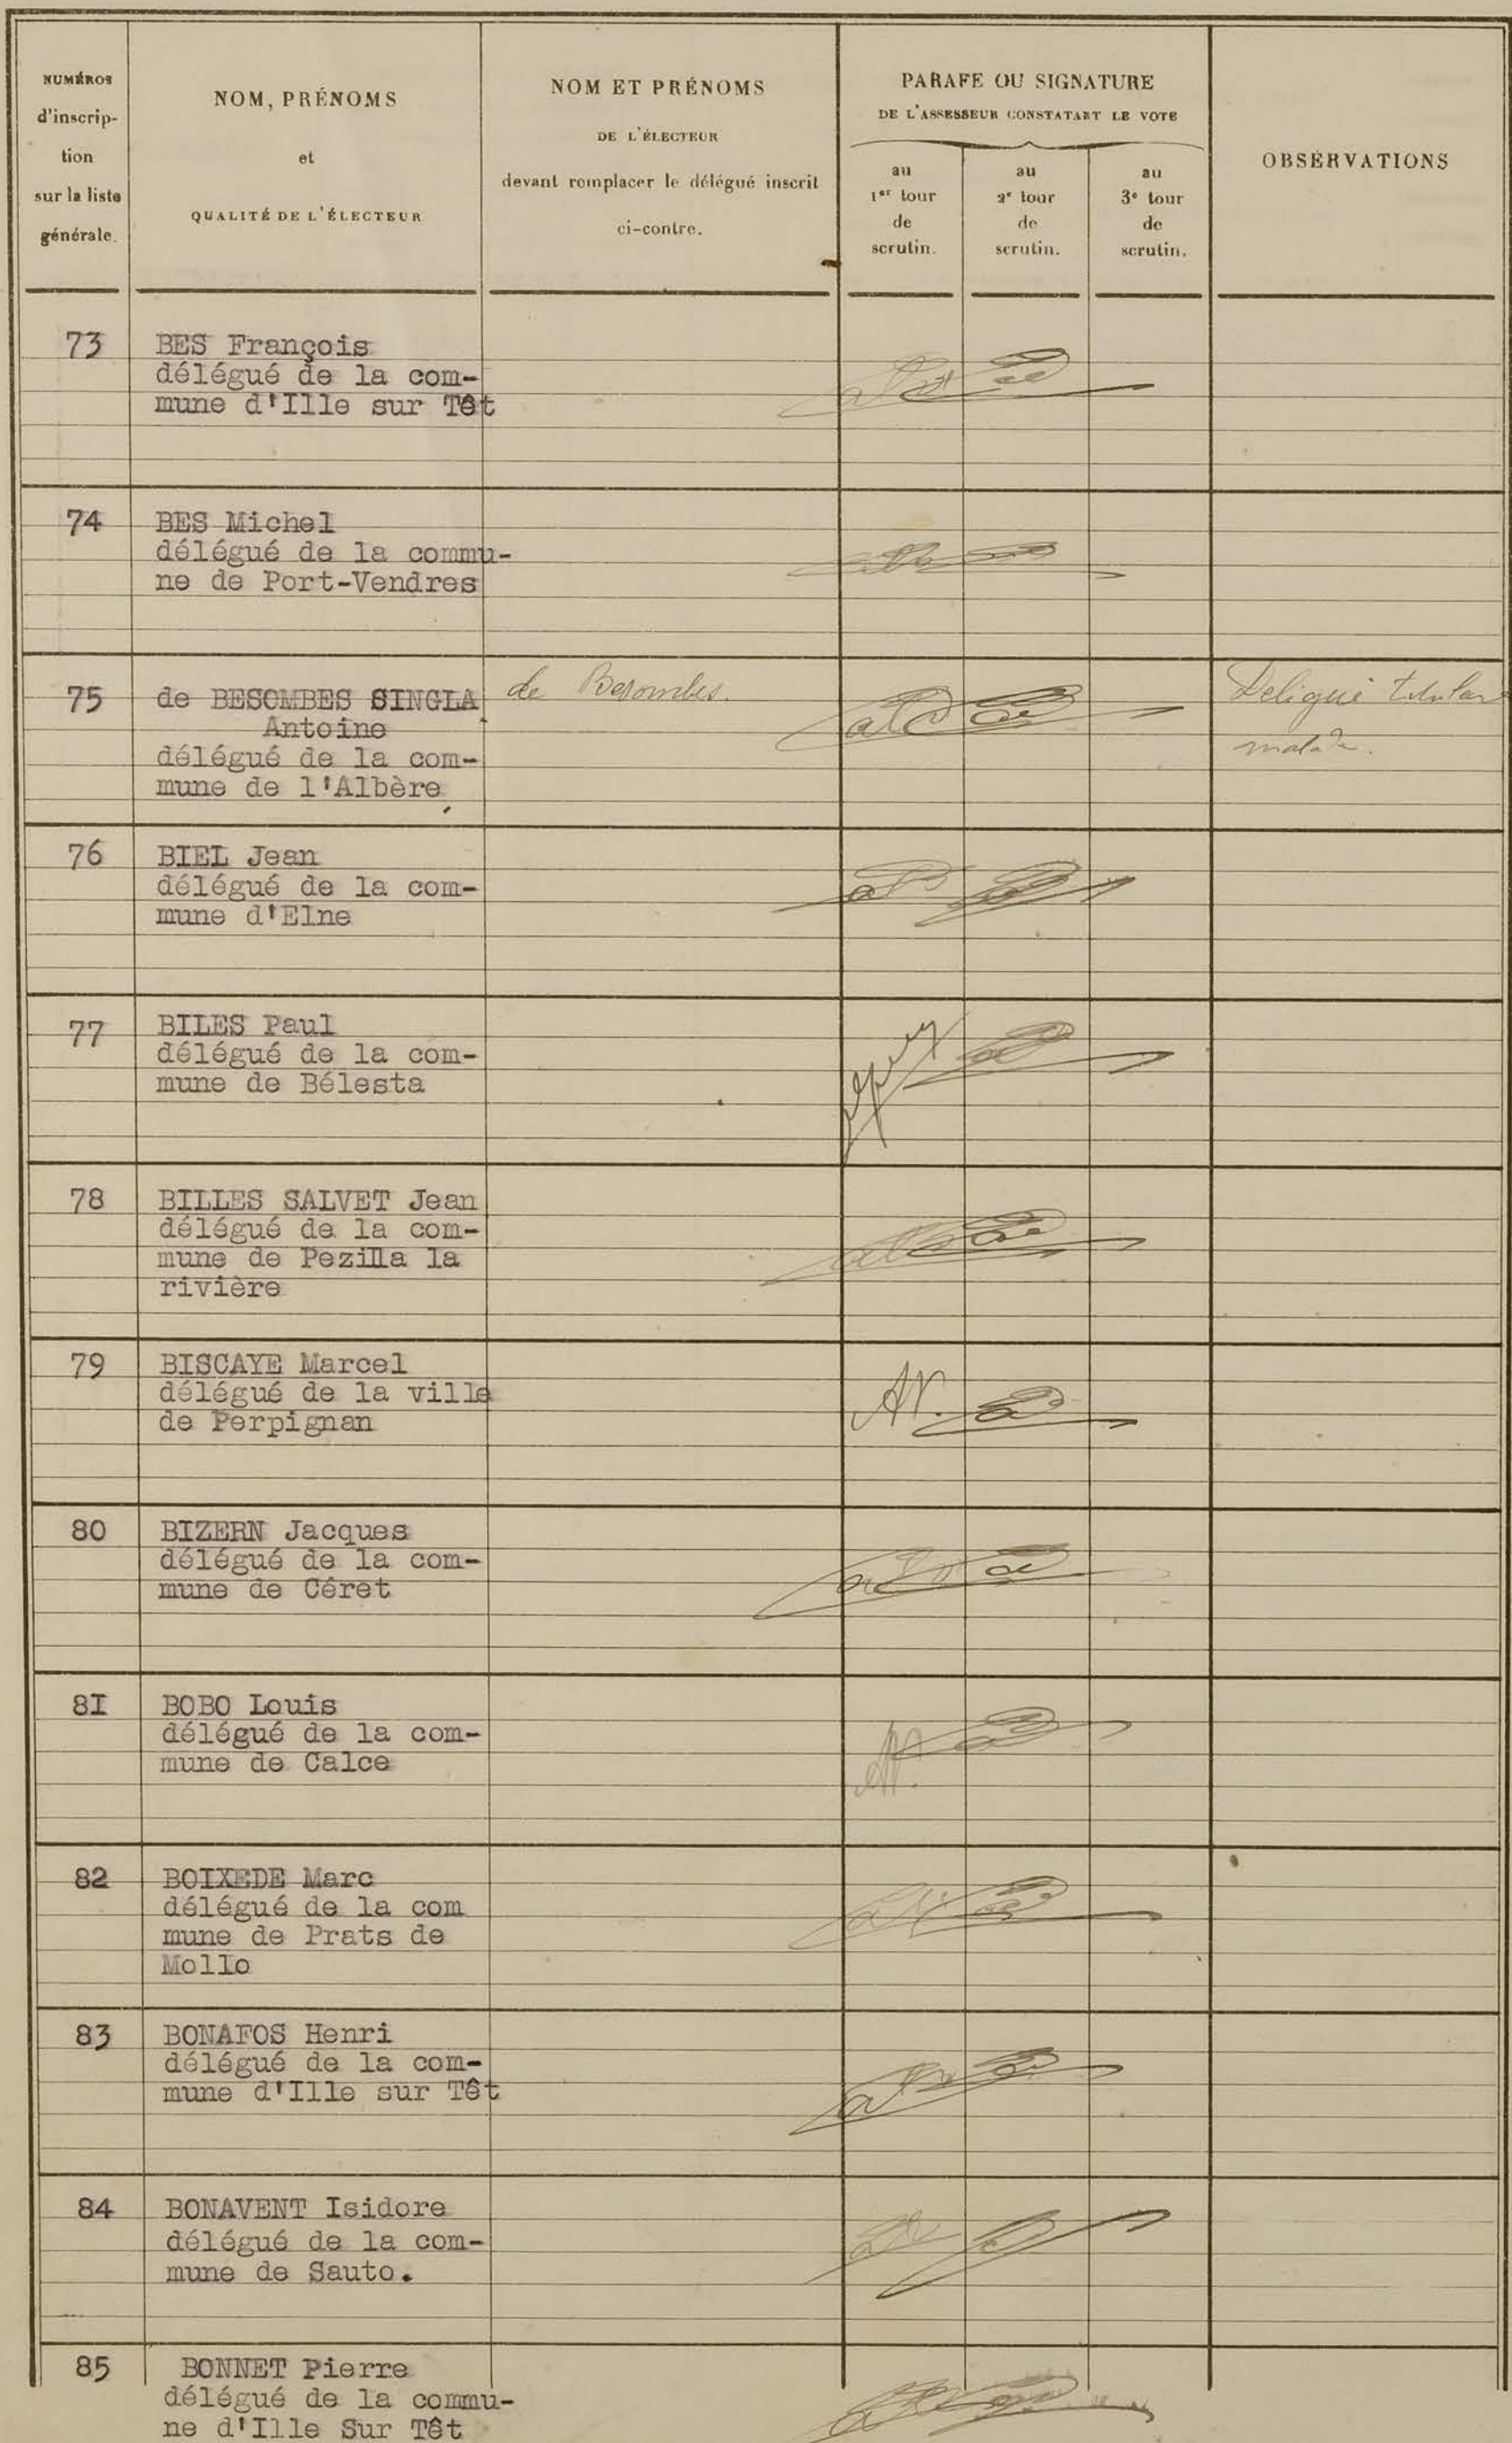 NUMÉROS
d'inscrip-
tion
sur la liste
générale.
NOM, PRÉNOMS
et
QUALITÉ DE L'ÉLECTEUR
NOM ET PRÉNOMS
DE L'ÉLECTEUR
devant remplacer le délégué inscrit
ci-contre.
PARAFE OU SIGNATURE
DE L'ASSESSEUR CONSTATANT LE VOTE
au
1er tour
de
scrutin.
au
2e tour
de
scrutin.
au
3e tour
de
scrutin.
OBSERVATIONS
73
BES François
délégué de la com-
mune d'Ille sur Têt
74
BES Michel
délégué de la commu-
ne de Port-Vendres
75
de BESOMBES SINGLA
Antoine
délégué de la com-
mune de l'Albère
de Besombes.
Deligué titulaire
malade.
76
BIEL Jean
délégué de la com-
mune d'Elne
77
BILES Paul
délégué de la com-
mune de Bélesta
78
BILLES SALVET Jean
délégué de la com-
mune de Pezilla la
rivière
79
BISCAYE Marcel
délégué de la ville
de Perpignan
80
BIZERN Jacques
délégué de la com-
mune de Céret
8I
BOBO Louis
délégué de la com-
mune de Calce
82
BOIXEDE Marc
délégué de la com
mune de Prats de
Mollo
83
BONAFOS Henri
délégué de la com-
mune d'Ille sur Têt
84
BONAVENT Isidore
délégué de la com-
mune de Sauto.
85
BONNET Pierre
délégué de la commu-
ne d'Ille Sur Têt